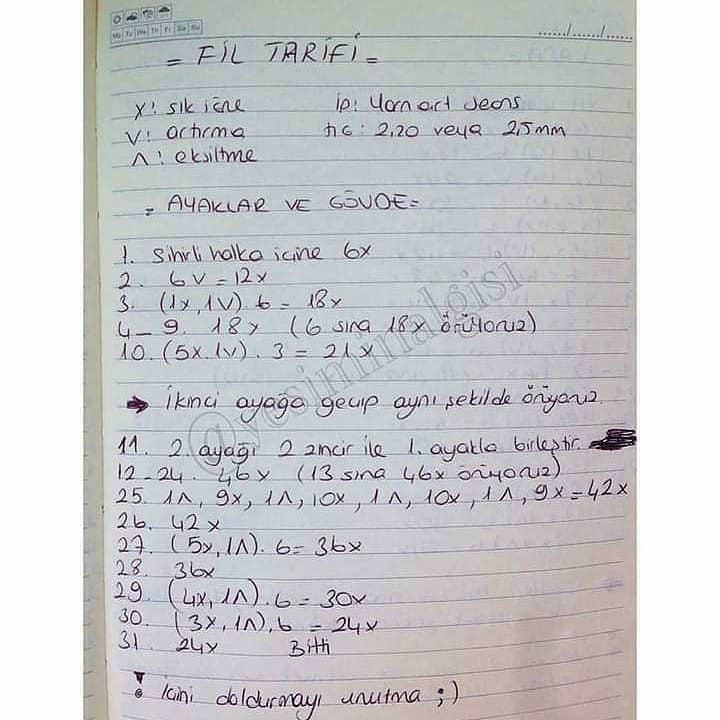 Mo Tu We Th Fr Sa Su
....../....../......
= FİL TARİFİ =
X: sık iğne
İp: Yarn art Jeans
V: artırma
tığ: 2,20 veya 2,5mm
Λ: eksiltme
= AYAKLAR VE GÖVDE =
1. Sihirli halka içine 6x
2. 6V = 12x
3. (1x, 1V). 6 = 18x
4_9. 18x (6 sıra 18x örüyoruz)
10. (5x.1V). 3 = 21x
→ İkinci ayağa geçip aynı şekilde örüyoruz.
11. 2. ayağı 2 zincir ile 1. ayakla birleştir.
12_24. 46x (13 sıra 46x örüyoruz)
25. 1Λ, 9x, 1Λ, 10x, 1Λ, 10x, 1Λ, 9x = 42x
26. 42x
27. (5x, 1Λ). 6 = 36x
28. 36x
29. (4x, 1Λ). 6 = 30x
30. (3x, 1Λ). 6 = 24x
31. 24x Bitti
! İçini doldurmayı unutma ;)
@yesiminalgisi